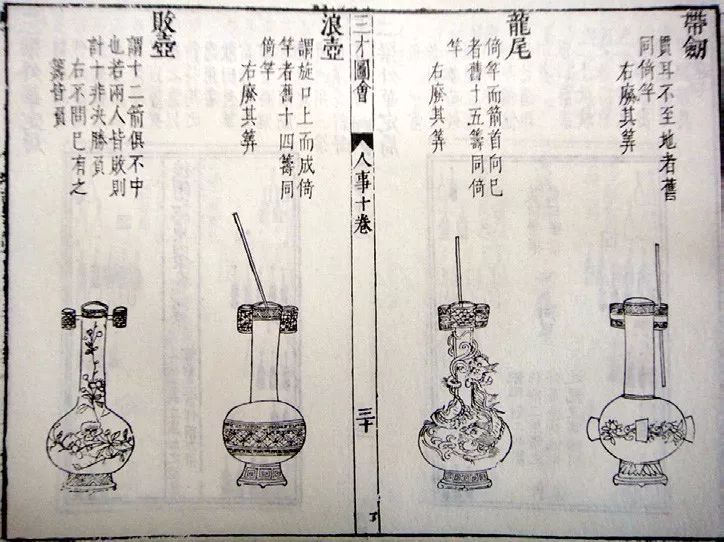 帶劍
貫耳不至地者舊
同倚竿
右廢其筭
龍尾
倚竿而箭首向巳
者舊十五籌同倚
竿
右廢其筭
三才圖會
人事十卷
三十
浪壺
謂旋口上而成倚
竿者舊十四籌同
倚竿
右廢其筭
敗壺
謂十二箭俱不中
也若兩人皆敗則
計十非决勝負
右不問巳有之
籌皆負